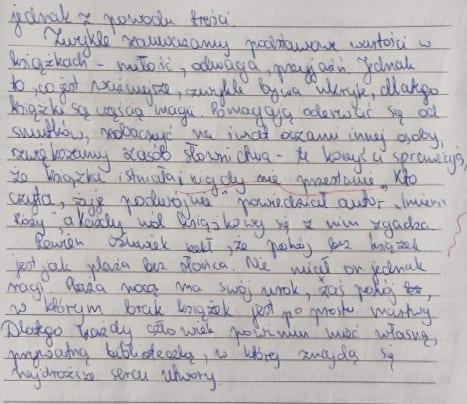 jednak z powodu treści.
Zwykle zauważamy podstawowe wartości w
książkach - miłość, odwaga, przyjaźń. Jednak
to, co jest ważniejsze, zwykle bywa ukryte, dlatego
książki są częścią magii. Pomagają oderwać się od
smutków, zobaczyć na świat oczami innej osoby,
zwiększamy zasób słownictwa - te korzyści sprawiają,
że książki istniały i nigdy nie przestanie. "Kto
czyta, żyje podwójnie" powiedział autor "Imienia
Róży", a każdy mól książkowy się z nim zgadza.
Pewien człowiek rzekł, że pokój bez książek
jest jak plaża bez słońca. Nie miał on jednak
racji. Plaża nocą ma swój urok, zaś pokój,
w którym brak książek jest po prostu martwy
Dlatego każdy człowiek powinien mieć własną,
prywatną biblioteczkę, w której znajdą się
najdroższe sercu utwory.